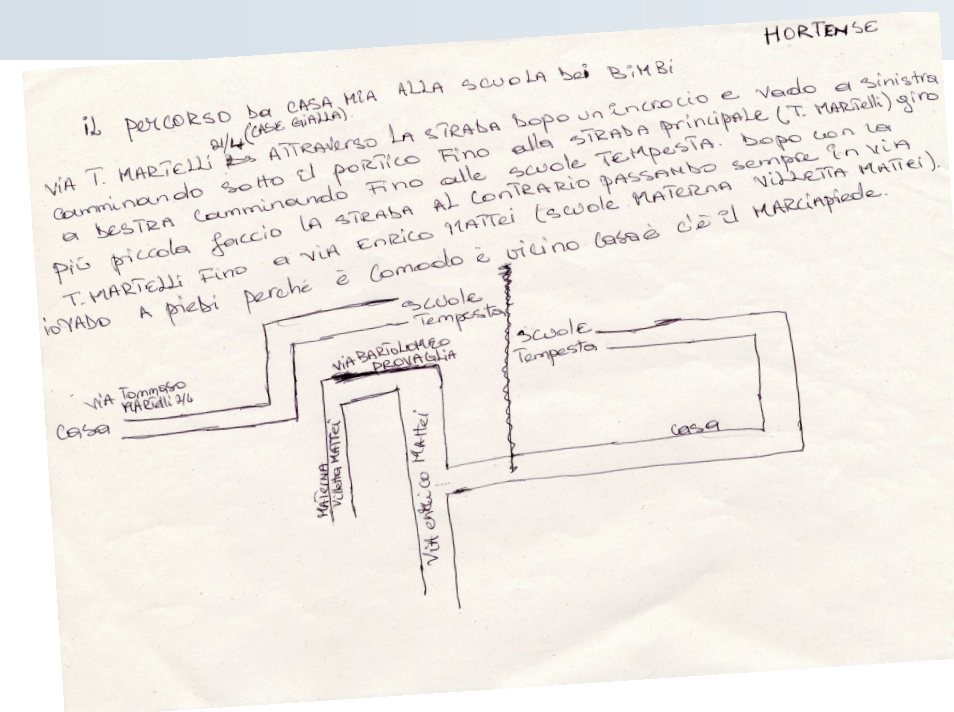 HORTENSE
iL PERCORSO Da CASA MIA ALLA SCUOLA Dei BiMBi
21/4 (CASE GIALLA).
ViA T. MARTELLi ATTRAVERSO LA STRADA Dopo un incrocio e vado a sinistra
camminando sotto il portico Fino alla STRADA principale (T. MARTElli) giro
a DESTRA camminando Fino alle scuole TEMPESTA. Dopo con la
più piccola faccio LA STRADA AL CONTRARIO PASSANDO sempre in ViA
T. MARTELLi Fino a viA ENRICO MATTei (scuole MATERNA VILLETTA MATTEi).
io VADO A piedi perché è comodo è vicino casa è c'è il MARCiApiede.
scuole
Tempesta
scuole
Tempesta
ViA BARTOLOMEO
PROVAGLIA
ViA Tommaso
casa
casa
MATERNA
Villetta MATTEi
ViA enrico MAttei